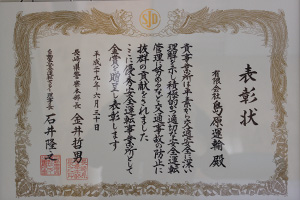 SJD
表彰状
有限会社島原運輸 殿
貴事業所は平素から交通安全に深い
理解を示し積極的に適切な安全運転
管理に努めるなど交通事故の防止に
抜群の貢献をされました
ここに優秀安全運転事業所として
金賞を贈呈し表彰します
平成二十九年六月三十日
長崎県警察本部長 金井哲男
自動車安全運転センター理事長 石井隆之